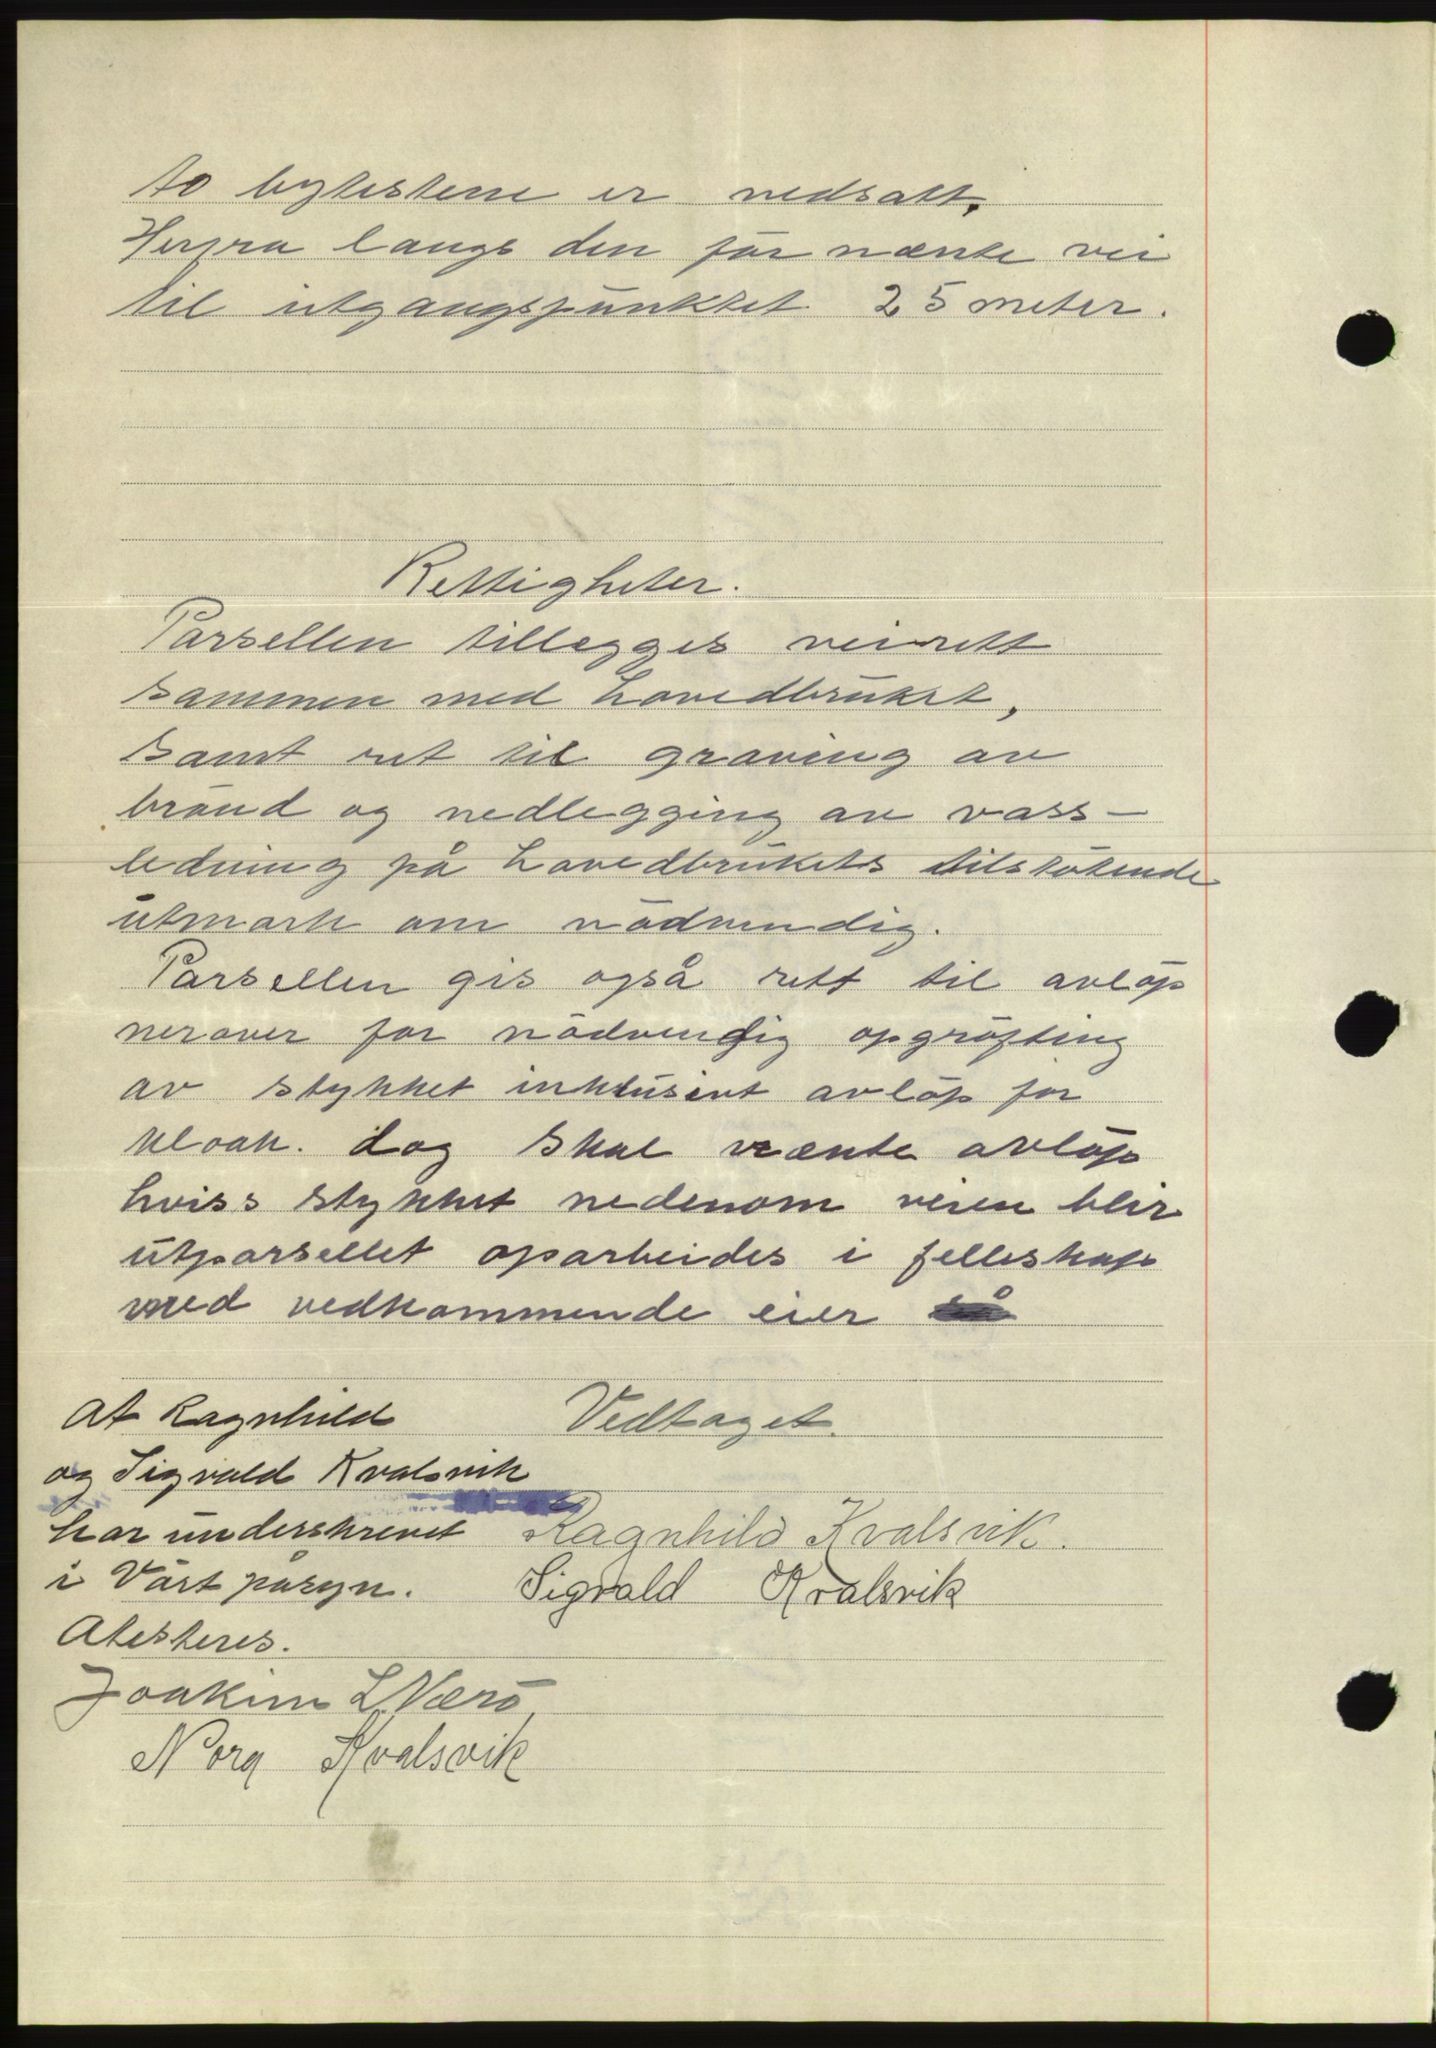 to bytestene er nedsatt.
Herfra langs den før nænte vei
til utgangspunktet 25 meter.
Rettigheter.
Parsellen tillegges veirett
sammen med hovedbruket,
samt ret til graving av
brønd og nedlegging av vass-
ledning på hovedbrukets tilstøtende
utmark om nødvendig.
Parsellen gis også rett til avløp
nerover for nødvendig opgrøfting
av stykket inklusivt avløp for
kloak. dog skal nænte avløp
hviss stykket nedenom veien blir
utparsellet oparbeides i felleskap
med vedkommende eier
At Ragnhild Vedtaget.
og Sigvald Kvalsvik
har underskrevet Ragnhild Kvalsvik.
i Vårt påsyn. Sigvald Kvalsvik
Atesteres.
Joakim L Nærö
Nora Kvalsvik